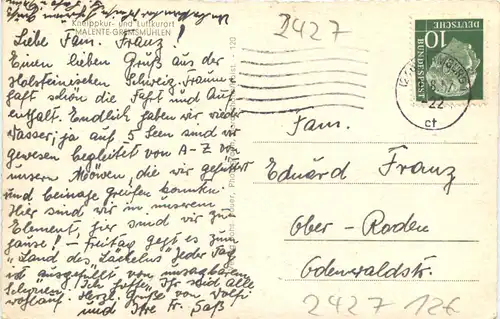 Kneippkur- und Luftkurort
MALENTE-GREMSMÜHLEN
Liebe Fam. Franz!
Einen lieben Gruß aus der
Holsteinischen Schweiz. Traum-
haft schön die Fahrt und Auf
enthalt. Endlich haben wir wieder
Wasser, ja auf 5 Seen sind wir
gewesen begleitet von A-Z v.
unsern Mööwen, die wir gefüttert
und beinahe greifen konnten.
Hier sind wir in unserem
Element, hier sind wir zu
hause! – Freitag geht es zum
"Land des Lächelns" Jeder Tag
ist ausgefüllt von unsagbarem
Schönen. Ich hoffe Ihr seid alle
wohlauf. Herzl. Grüße von
und Ihre Fr. Saß
2427
DEUTSCHE
BUNDESPOST
10
-22
ct
Fam.
Eduard Franz
Ober-Roden
Odenwaldstr.
2427 126
120